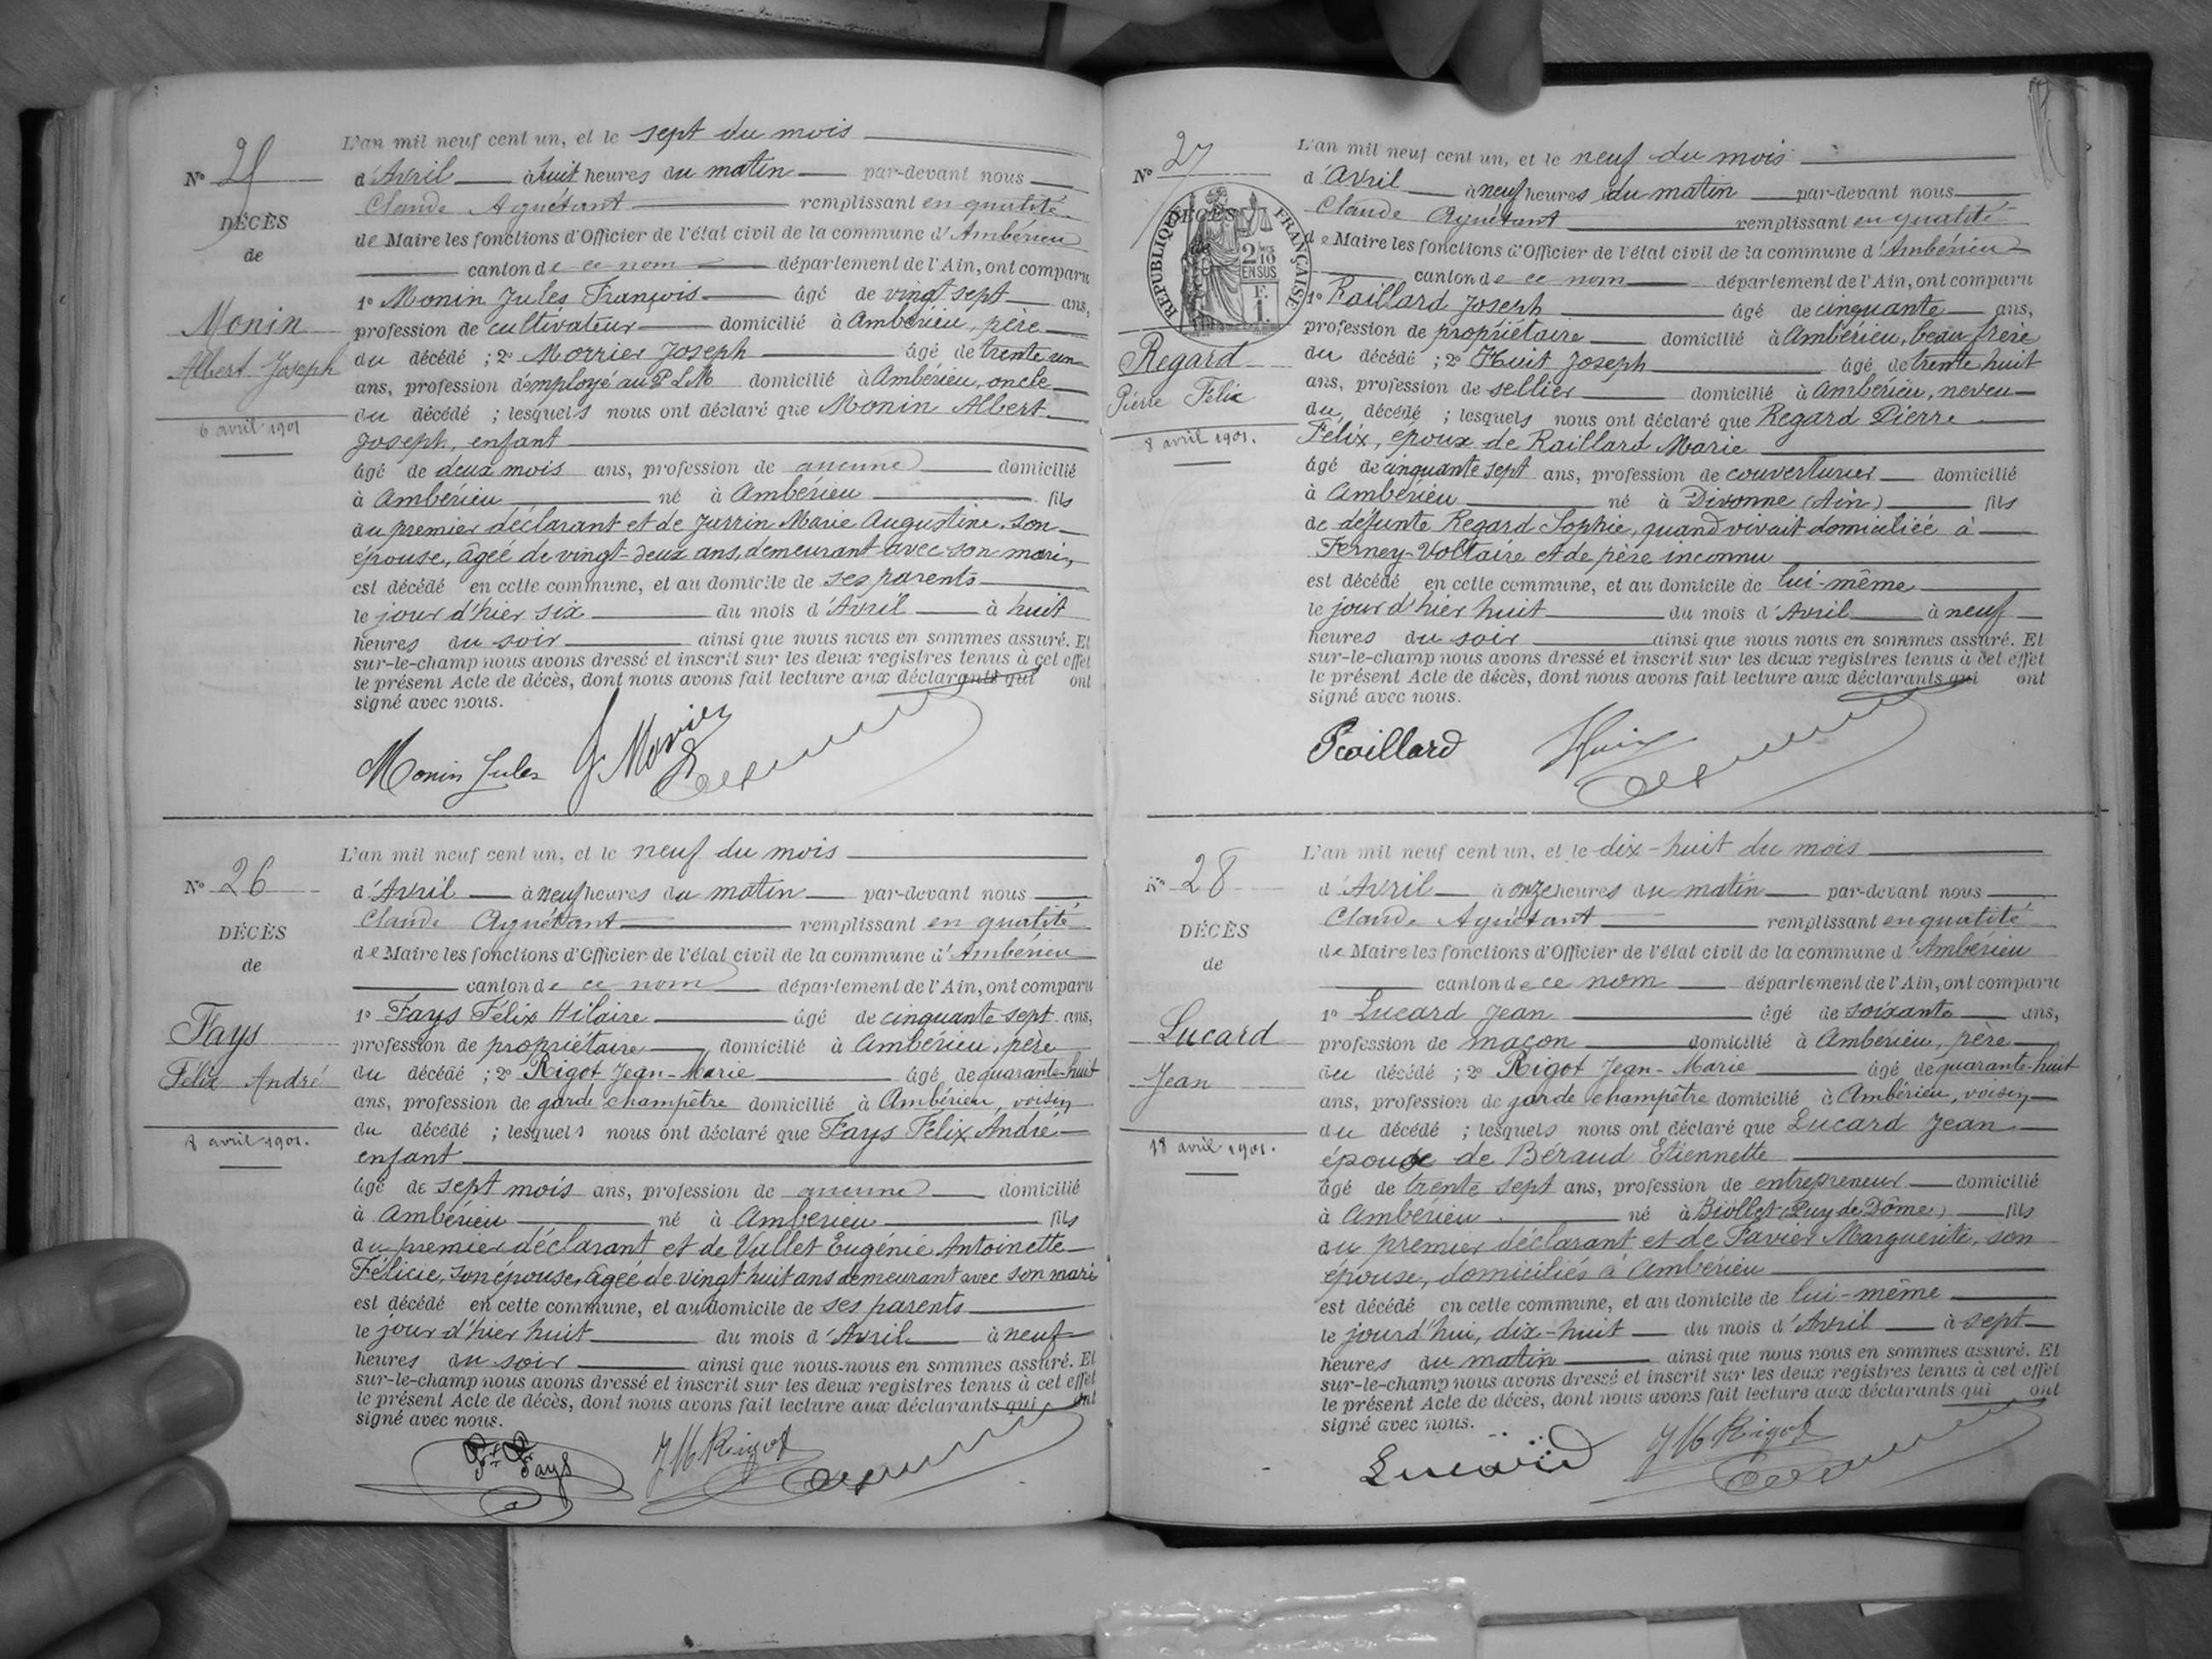 L'an mil neuf cent un, et le sept du mois
N° 25
d'Avril à huit heures du matin par-devant nous
Claude Aguétant remplissant en qualité
DÉCÈS
de Maire les fonctions d'Officier de l'état civil de la commune d'Ambérieu
de
canton de ce nom département de l'Ain, ont comparu
1° Monin Jules François âgé de vingt sept ans,
Monin
profession de cultivateur domicilié à Ambérieu, père
Albert Joseph
du décédé ; 2° Morrier Joseph âgé de trente un
ans, profession d'employé au P L M domicilié à Ambérieu, oncle
du décédé ; lesquels nous ont déclaré que Monin Albert
6 avril 1901
Joseph, enfant
âgé de deux mois ans, profession de aucune domicilié
à Ambérieu né à Ambérieu fils
du premier déclarant et de Jurrin Marie Augustine, son
épouse, âgée de vingt-deux ans, demeurant avec son mari,
est décédé en cette commune, et au domicile de ses parents
le jour d'hier six du mois d'Avril à huit
heures du soir ainsi que nous nous en sommes assuré. Et
sur-le-champ nous avons dressé et inscrit sur les deux registres tenus à cet effet
le présent Acte de décès, dont nous avons fait lecture aux déclarants qui ont
signé avec nous.
Monin Jules J. Morrier
L'an mil neuf cent un, et le neuf du mois
N° 26
d'Avril à neuf heures du matin par-devant nous
Claude Aguétant remplissant en qualité
DÉCÈS
de Maire les fonctions d'Officier de l'état civil de la commune d'Ambérieu
de
canton de ce nom département de l'Ain, ont comparu
1° Fays Félix Hilaire âgé de cinquante sept ans,
Fays
profession de propriétaire domicilié à Ambérieu, père
Félix André
du décédé ; 2° Rigot Jean-Marie âgé de quarante-huit
ans, profession de garde champêtre domicilié à Ambérieu, voisin
du décédé ; lesquels nous ont déclaré que Fays Félix André
8 avril 1901.
enfant
âgé de sept mois ans, profession de aucune domicilié
à Ambérieu né à Ambérieu fils
du premier déclarant et de Vallet Eugénie Antoinette
Félicie, son épouse, âgée de vingt huit ans demeurant avec son mari
est décédé en cette commune, et au domicile de ses parents
le jour d'hier huit du mois d'Avril à neuf
heures du soir ainsi que nous-nous en sommes assuré. Et
sur-le-champ nous avons dressé et inscrit sur les deux registres tenus à cet effet
le présent Acte de décès, dont nous avons fait lecture aux déclarants qui ont
signé avec nous.
Fays JM Rigot
L'an mil neuf cent un, et le neuf du mois
N° 27
d'Avril à neuf heures du matin par-devant nous
Claude Aguétant remplissant en qualité
DÉCÈS
RÉPUBLIQUE FRANÇAISE
2/10 EN SUS
F. 1.
de Maire les fonctions d'Officier de l'état civil de la commune d'Ambérieu
canton de ce nom département de l'Ain, ont comparu
1° Raillard Joseph âgé de cinquante ans,
profession de propriétaire domicilié à Ambérieu, beau frère
Regard
du décédé ; 2° Huit Joseph âgé de trente huit
Pierre Félix
ans, profession de sellier domicilié à Ambérieu, neveu
du décédé ; lesquels nous ont déclaré que Regard Pierre
8 avril 1901.
Félix, époux de Raillard Marie
âgé de cinquante sept ans, profession de couverturier domicilié
à Ambérieu né à Divonne (Ain) fils
de défunte Regard Sophie, quand vivait domiciliée à
Ferney-Voltaire et de père inconnu
est décédé en cette commune, et au domicile de lui-même
le jour d'hier huit du mois d'Avril à neuf
heures du soir ainsi que nous nous en sommes assuré. Et
sur-le-champ nous avons dressé et inscrit sur les deux registres tenus à cet effet
le présent Acte de décès, dont nous avons fait lecture aux déclarants qui ont
signé avec nous.
Raillard
L'an mil neuf cent un, et le dix-huit du mois
N° 28
d'Avril à onze heures du matin par-devant nous
Claude Aguétant remplissant en qualité
DÉCÈS
de Maire les fonctions d'Officier de l'état civil de la commune d'Ambérieu
de
canton de ce nom département de l'Ain, ont comparu
1° Lucard Jean âgé de soixante ans,
Lucard
profession de maçon domicilié à Ambérieu, père
Jean
du décédé ; 2° Rigot Jean-Marie âgé de quarante-huit
ans, profession de garde champêtre domicilié à Ambérieu, voisin
du décédé ; lesquels nous ont déclaré que Lucard Jean
18 avril 1901.
époux de Béraud Etiennette
âgé de trente sept ans, profession de entrepreneur domicilié
à Ambérieu né à Biollet (Puy de Dôme) fils
du premier déclarant et de Favier Marguerite, son
épouse, domiciliés à Ambérieu
est décédé en cette commune, et au domicile de lui-même
le jourd'hui, dix-huit du mois d'Avril à sept
heures du matin ainsi que nous nous en sommes assuré. Et
sur-le-champ nous avons dressé et inscrit sur les deux registres tenus à cet effet
le présent Acte de décès, dont nous avons fait lecture aux déclarants qui ont
signé avec nous.
Lucard JM Rigot